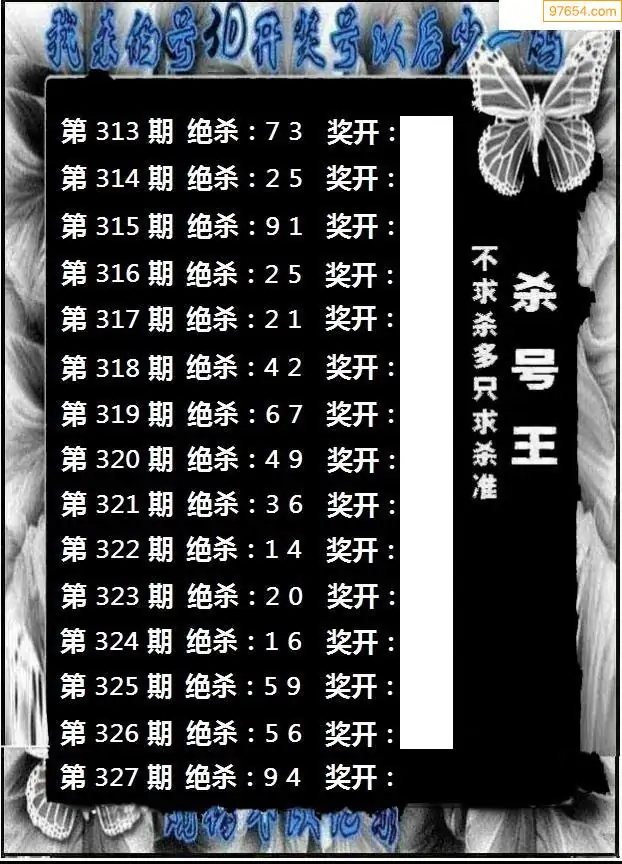 97654.com
我杀的号3D开奖号以后少一码
第 313 期 绝杀：7 3 奖开：
第 314 期 绝杀：2 5 奖开：
第 315 期 绝杀：9 1 奖开：
第 316 期 绝杀：2 5 奖开：
第 317 期 绝杀：2 1 奖开：
第 318 期 绝杀：4 2 奖开：
第 319 期 绝杀：6 7 奖开：
第 320 期 绝杀：4 9 奖开：
第 321 期 绝杀：3 6 奖开：
第 322 期 绝杀：1 4 奖开：
第 323 期 绝杀：2 0 奖开：
第 324 期 绝杀：1 6 奖开：
第 325 期 绝杀：5 9 奖开：
第 326 期 绝杀：5 6 奖开：
第 327 期 绝杀：9 4 奖开：
杀号王
不求杀多只求杀准